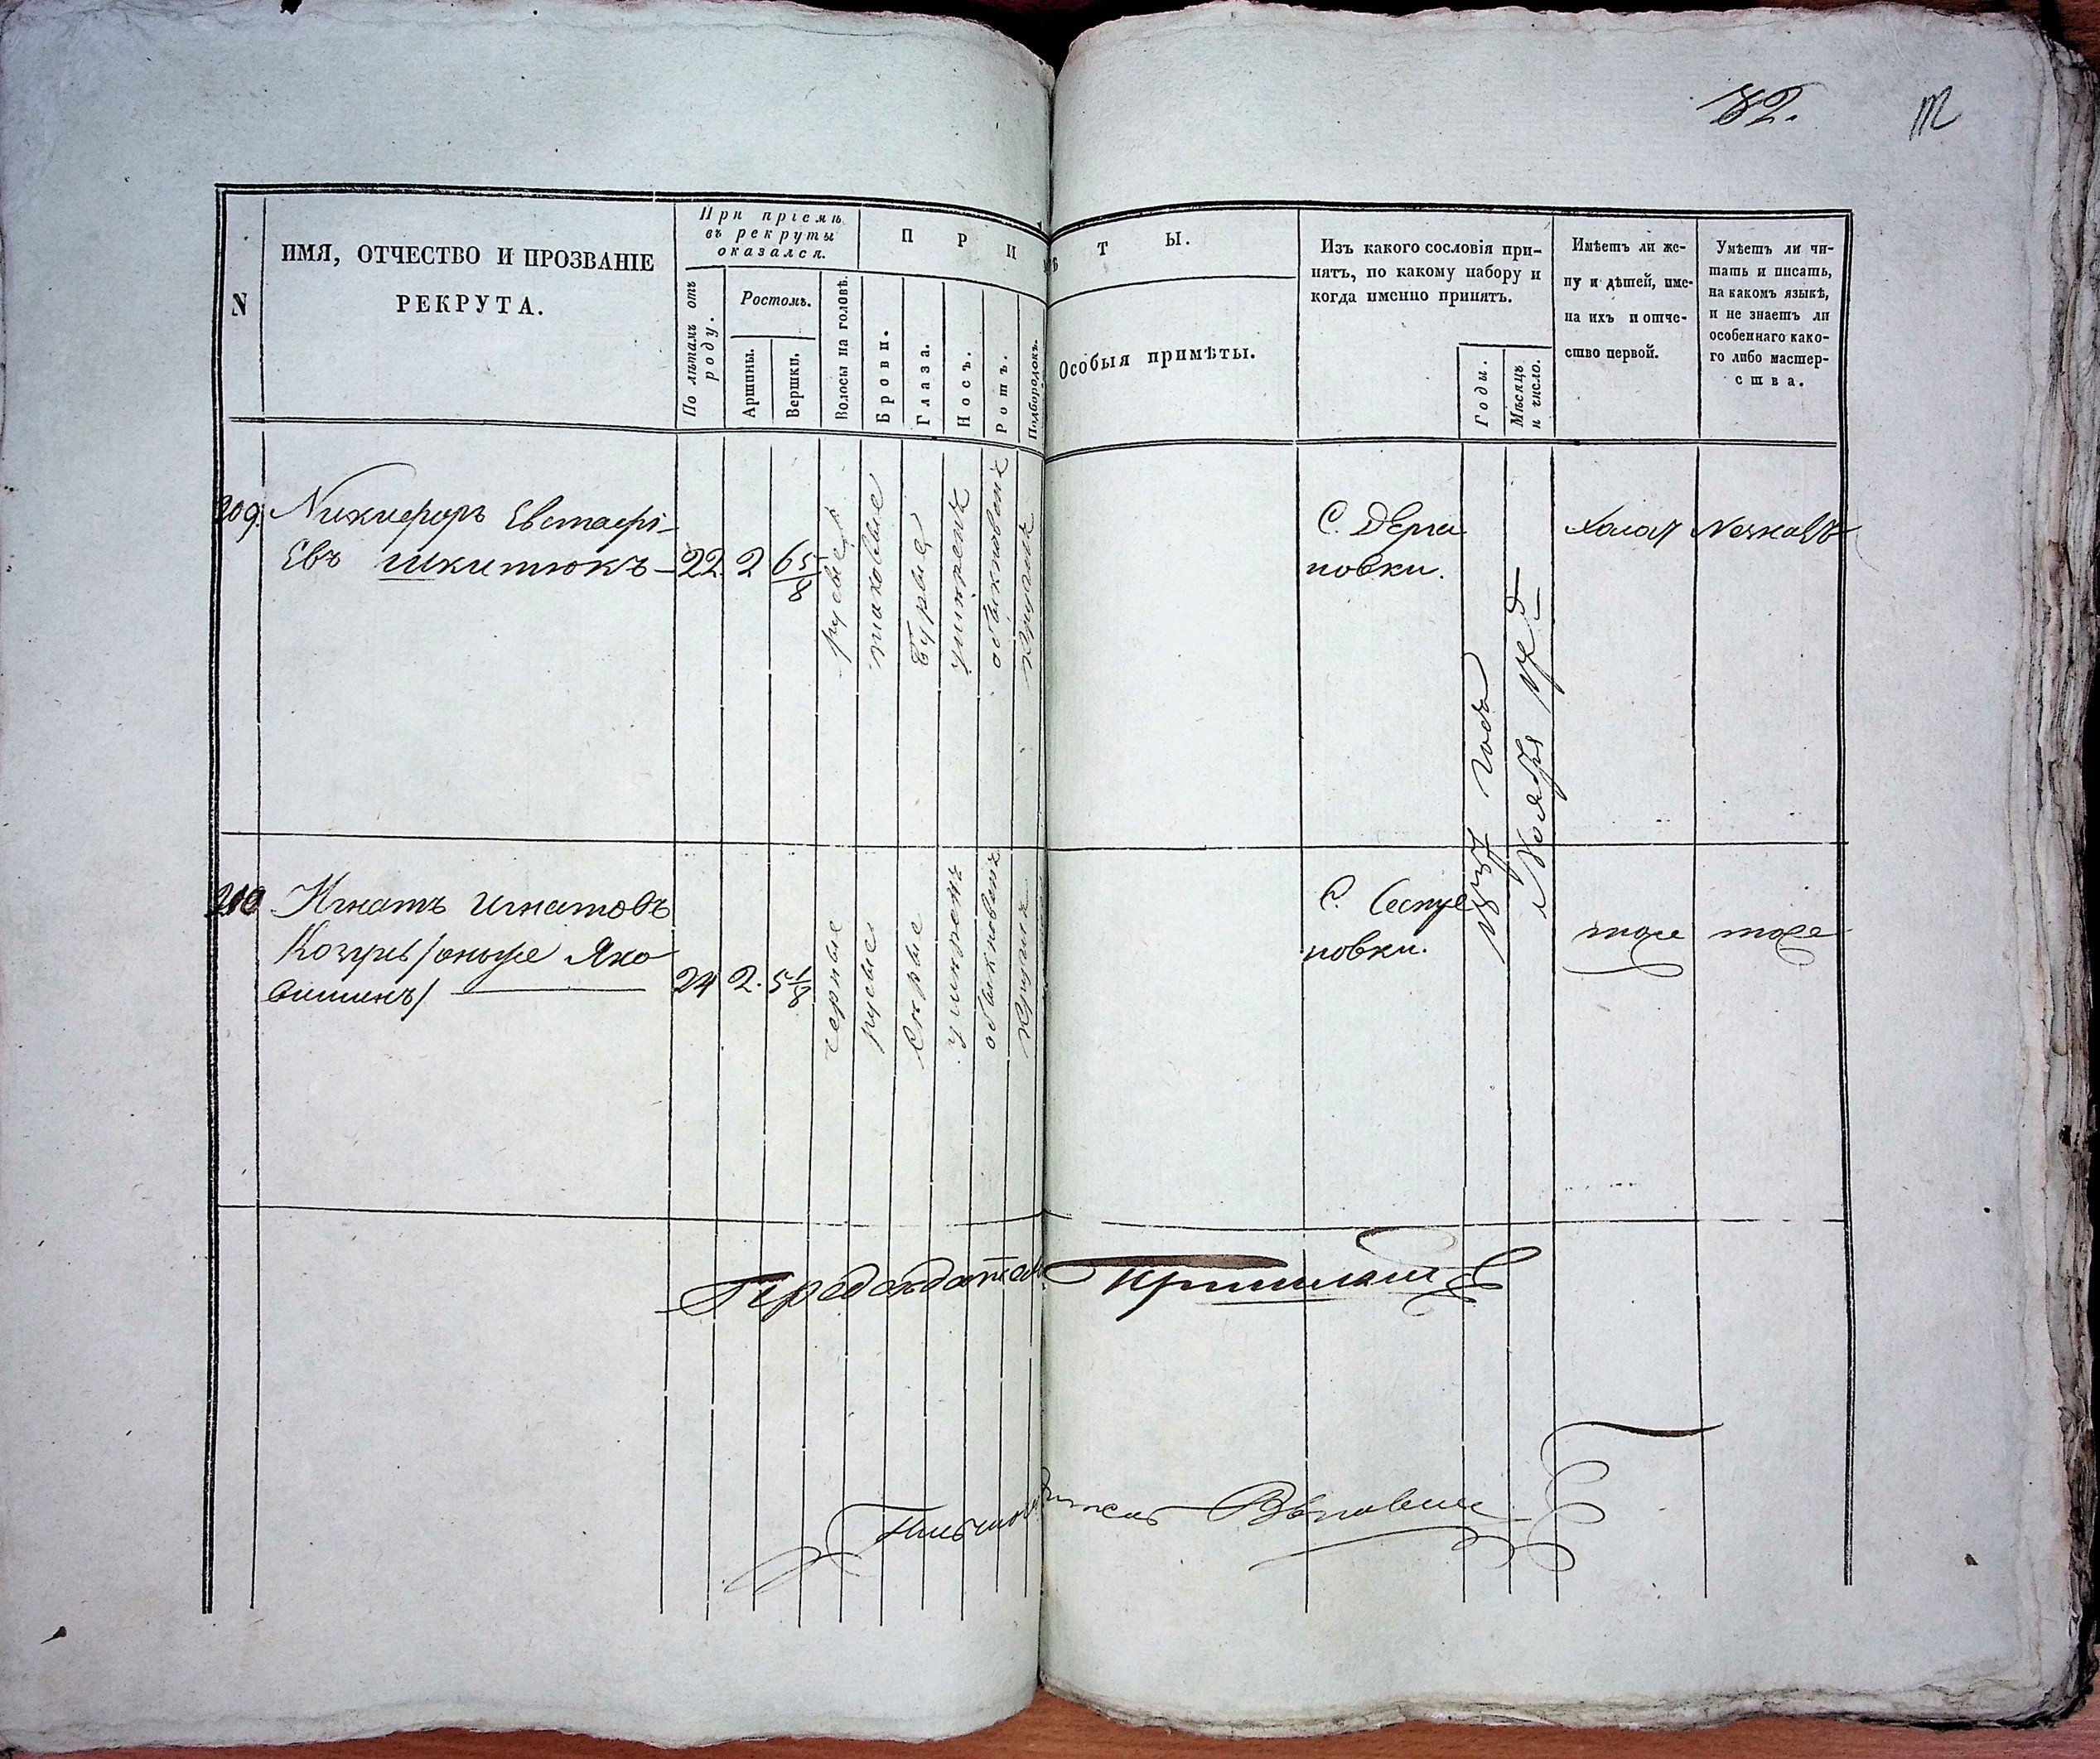 82.
N
ИМЯ, ОТЧЕСТВО И ПРОЗВАНІЕ
РЕКРУТА.
При пріемѣ
въ рекруты
оказался.
По лѣтамъ отъ
роду.
Ростомъ.
Аршины.
Вершки.
П Р И М Ѣ Т Ы.
Волосы на головѣ.
Брови.
Глаза.
Носъ.
Ротъ.
Подбородокъ.
Особыя примѣты.
Изъ какого сословія при-
нятъ, по какому набору и
когда именно принятъ.
Годы.
Мѣсяцъ
и число.
Имѣетъ ли же-
ну и дѣтей, име-
на ихъ и отче-
ство первой.
Умѣетъ ли чи-
тать и писать,
на какомъ языкѣ,
и не знаетъ ли
особеннаго како-
го либо мастер-
ства.
209.
Никифоръ Евстафі-
евъ Шкитюкъ
22. 2 6 5/8
русые
таковые
бурые
умѣрен:
обыкновен:
кругл:
С. Дерга
новки.
1837 года
Ноября
холост
210
Игнатъ Игнатовъ
Козырь /онъ же Яко
вишинъ/
24 2. 5 1/8
черные
русые
сѣрые
умѣрен:
обыкновен:
кругл:
новки.
тоже
тоже